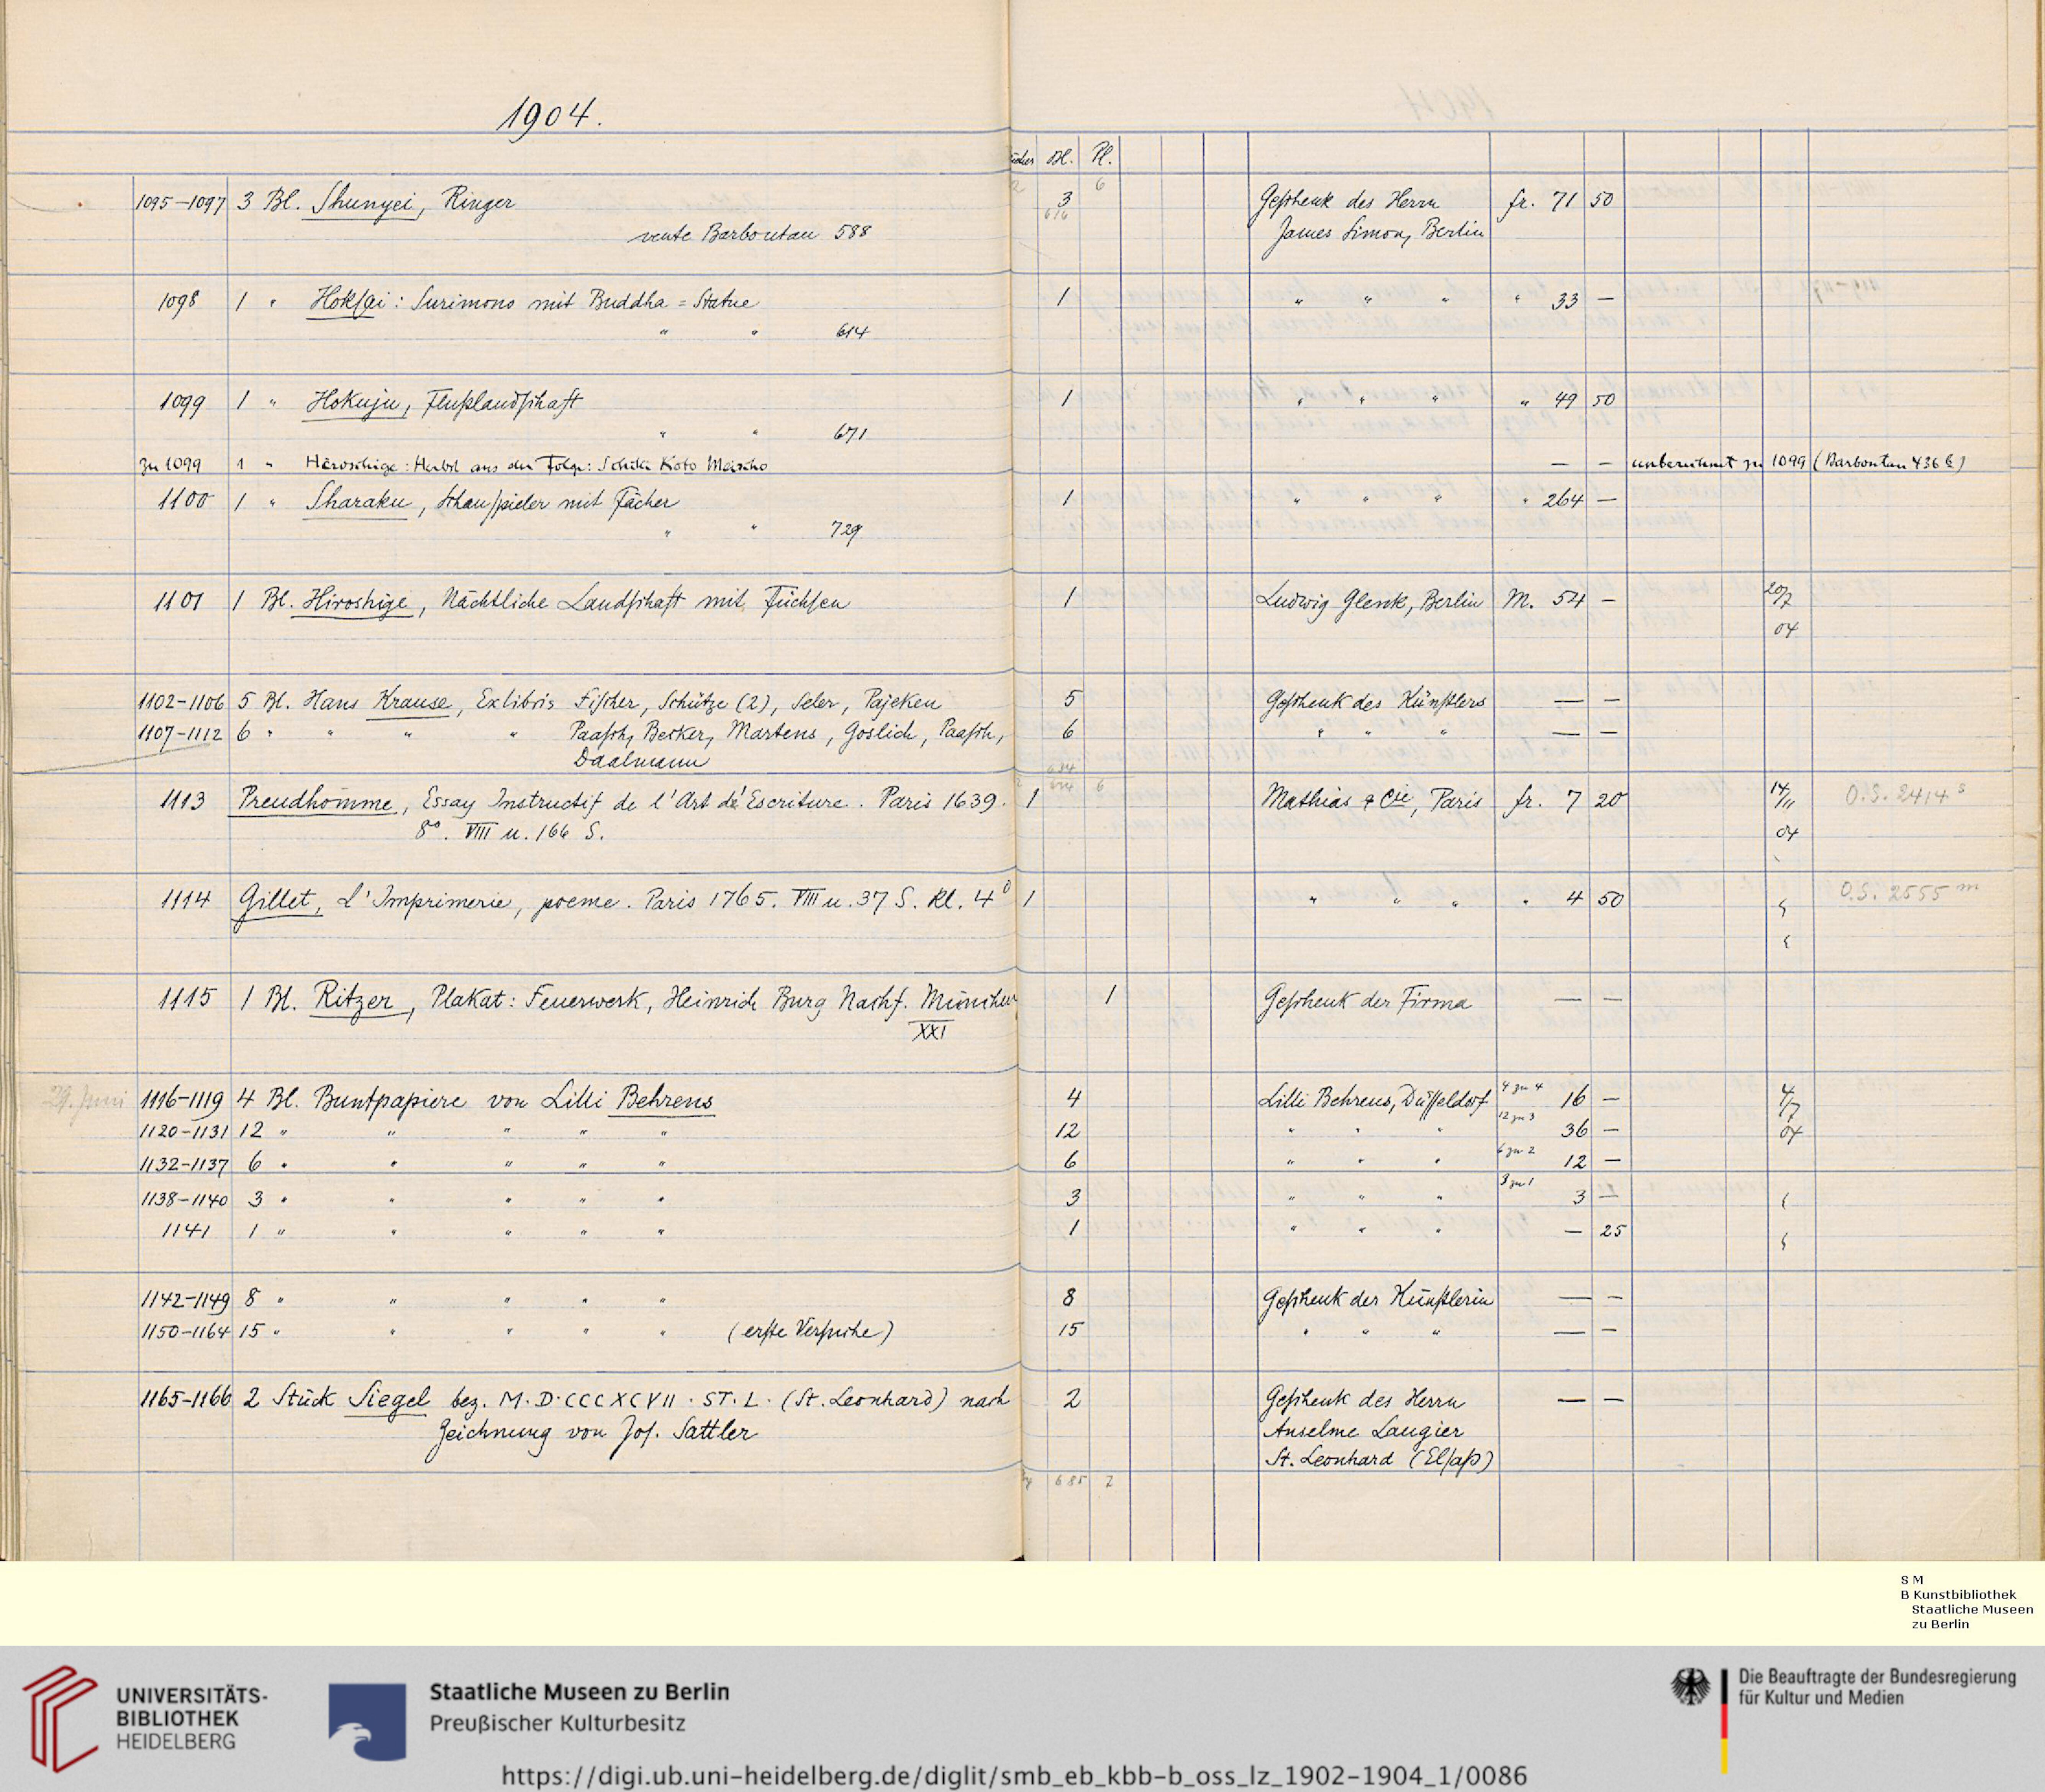 1904.
Bl. Pl.
1095–1097 3 Bl. Shunyei, Ringer 3 Geschenk des Herrn fr. 71 50
vente Barboutau 588 James Simon, Berlin
1098 1 " Hoksai: Surimono mit Buddha=Statue 1 " " " " 33 —
" " 614
1099 1 " Hokuju, Flußlandschaft 1 " " " " 49 50
" " 671
zu 1099 1 " Hiroshige: Herbst aus der Folge: Schiki Koto Meisho — — unberechnet zu 1099 (Barboutau 436 b)
1100 1 " Sharaku, Schauspieler mit Fächer 1 " " " " 264 —
" " 729
1101 1 Bl. Hiroshige, Nächtliche Landschaft mit Füchsen 1 Ludwig Glenk, Berlin M. 54 — 20/7
04
1102–1106 5 Bl. Hans Krause, Exlibris Fischer, Schütze (2), Seler, Pajeken 5 Geschenk des Künstlers — —
1107–1112 6 " " " " Paasch, Becker, Martens, Goslich, Paasch, 6 " " " — —
Daalmann
1113 Preudhomme, Essay Instructif de l'Art de Escriture. Paris 1639. 1 Mathias & Cie, Paris fr. 7 20 14/11 O.S. 2414 s
8°. VIII u. 166 S. 04
1114 Gillet, L'Imprimerie, poeme. Paris 1765. VIII u. 37 S. Kl. 4° 1 " " " " 4 50 O.S. 2555 m
1115 1 Bl. Ritzer, Plakat: Feuerwerk, Heinrich Burg Nachf. München 1 Geschenk der Firma — —
XXI
29. Juni 1116–1119 4 Bl. Buntpapiere von Lilli Behrens 4 Lilli Behrens, Düsseldorf 4 zu 4 16 — 4/7
1120–1131 12 " " " " " 12 " " " 12 zu 3 36 — 04
1132–1137 6 " " " " " 6 " " " 6 zu 2 12 —
1138–1140 3 " " " " " 3 " " " 3 zu 1 3 —
1141 1 " " " " " 1 " " " — 25
1142–1149 8 " " " " " 8 Geschenk der Künstlerin — —
1150–1164 15 " " " " " (erste Versuche) 15 " " " — —
1165–1166 2 Stück Siegel bez. M·D·CCCXCVII · ST·L· (St. Leonhard) nach 2 Geschenk des Herrn — —
Zeichnung von Jos. Sattler Anselme Laugier
St. Leonhard (Elsaß)
685 7
S M
B Kunstbibliothek
Staatliche Museen
zu Berlin
UNIVERSITÄTS-
BIBLIOTHEK
HEIDELBERG
Staatliche Museen zu Berlin
Preußischer Kulturbesitz
Die Beauftragte der Bundesregierung
für Kultur und Medien
https://digi.ub.uni-heidelberg.de/diglit/smb_eb_kbb-b_oss_lz_1902-1904_1/0086